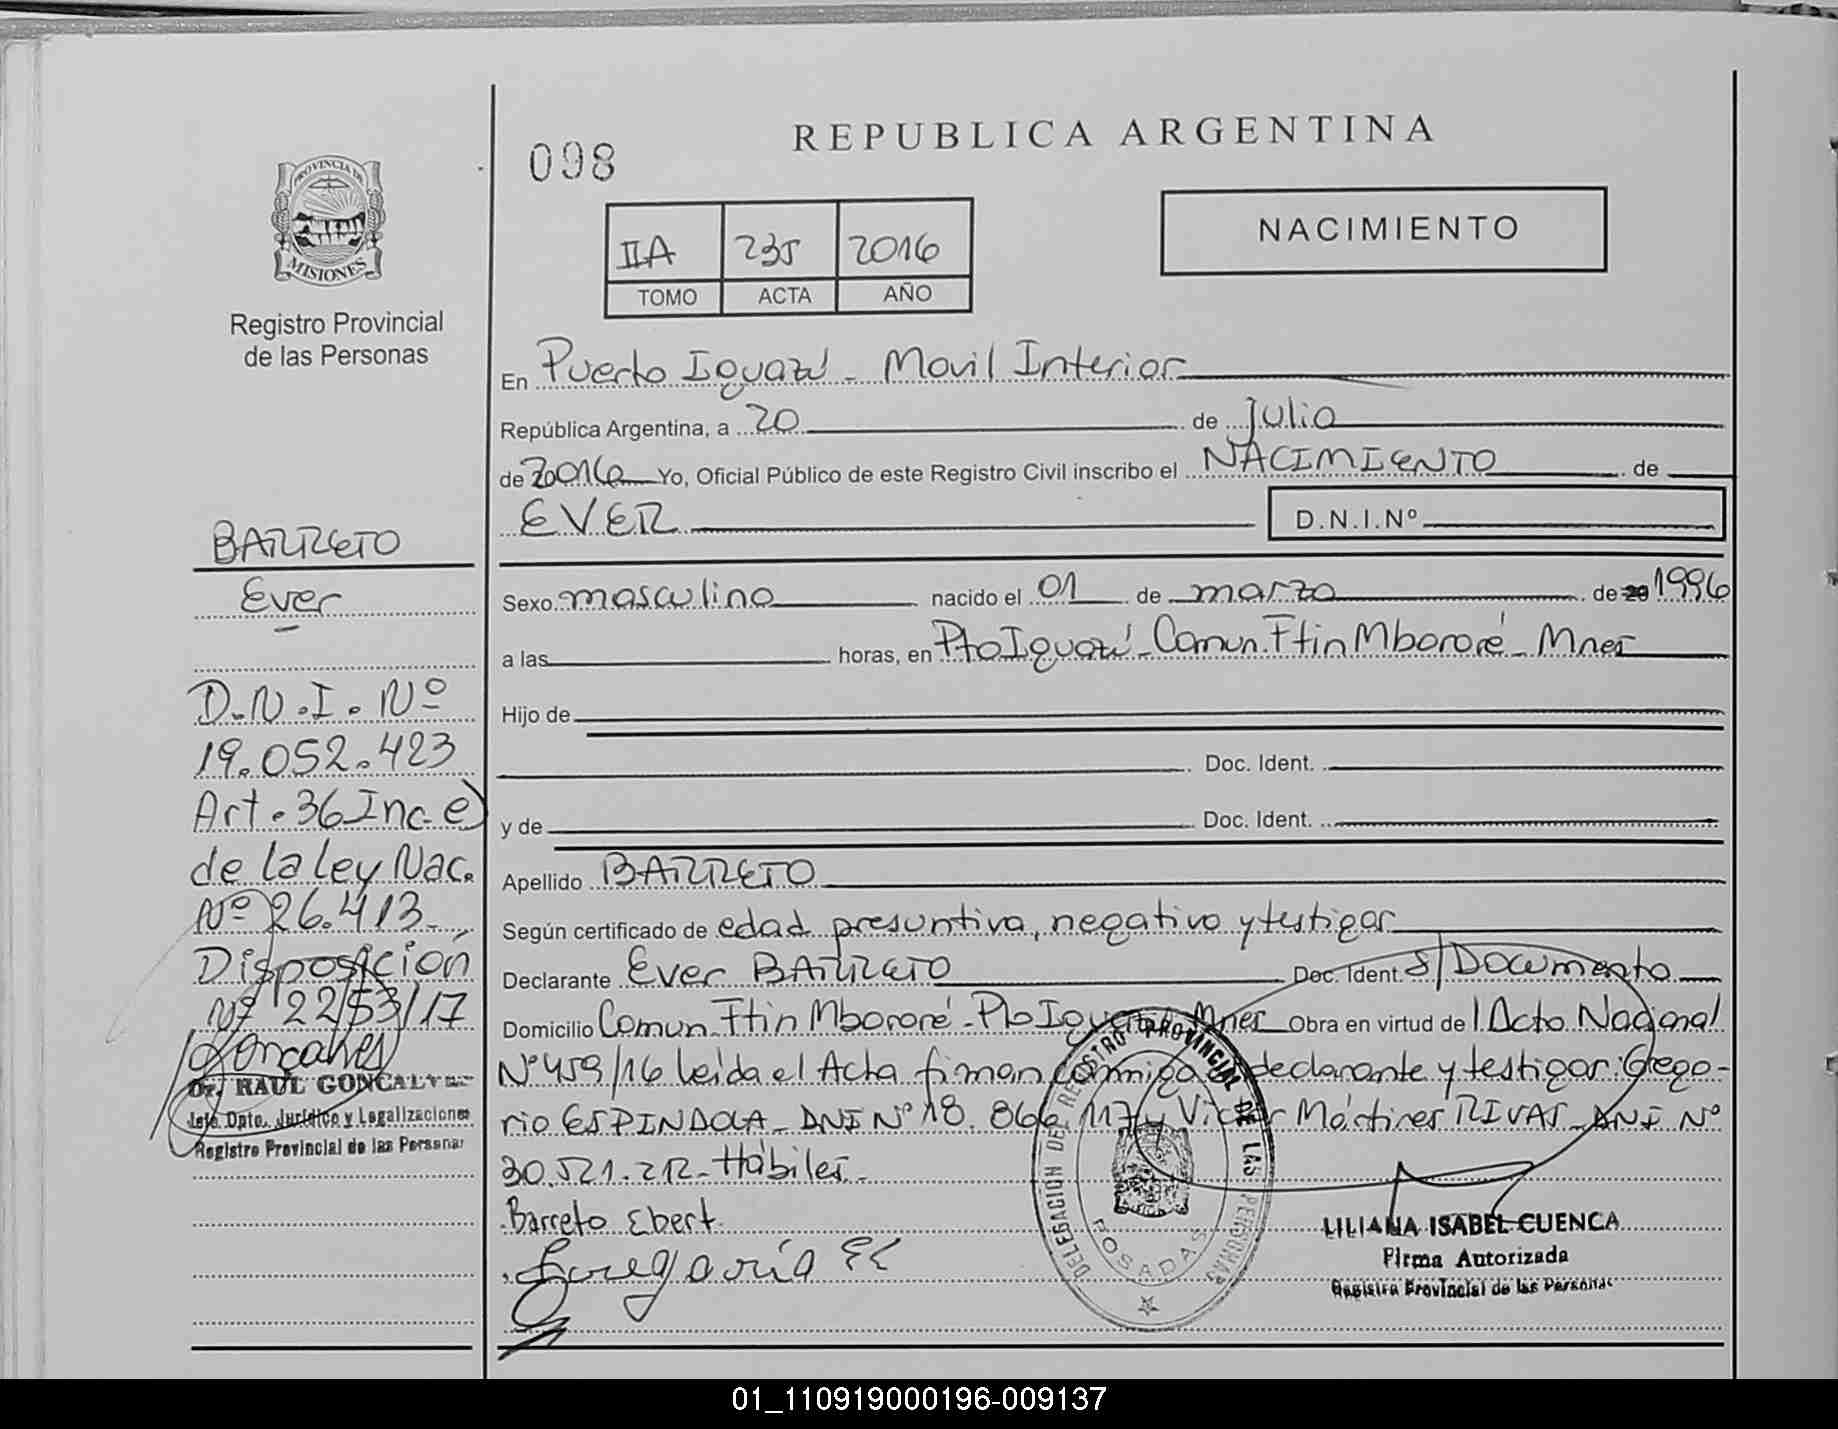 REPUBLICA ARGENTINA
098
PROVINCIA DE
MISIONES
Registro Provincial
de las Personas
IIA 235 2016
TOMO ACTA AÑO
NACIMIENTO
En Puerto Iguazú - Movil Interior
República Argentina, a 20 de Julio
de 2016 Yo, Oficial Público de este Registro Civil inscribo el NACIMIENTO de
EVER D.N.I.Nº
Sexo masculino nacido el 01 de marzo de 20 1996
a las horas, en Pto Iguazú - Comun. Ftin Mbororé - Mnes
Hijo de
Doc. Ident.
y de Doc. Ident.
Apellido BARRETO
Según certificado de edad presuntiva, negativo y testigos
Declarante Ever BARRETO Doc. Ident. S/Documento
Domicilio Comun. Ftin Mbororé - Pto Iguazú - Mnes Obra en virtud de l Dcto Nacional
Nº 459/16 leida el Acta firman conmigo declarante y testigos: Grego-
rio ESPINDOLA - DNI Nº 18.866.117 y Victor Mártires RIVAS - DNI Nº
30.521.212 - Hábiles.
Barreto Ebert
LILIANA ISABEL CUENCA
Firma Autorizada
Registro Provincial de las Personas
DELEGACION DEL REGISTRO PROVINCIAL DE LAS PERSONAS
POSADAS
BARRETO
Ever
D.N.I. Nº
19.052.423
Art. 36 Inc. e)
de la ley Nac.
Nº 26.413.
Disposición
Nº 2253/17
Goncalves
Dr. RAUL GONCALVES
Jefe Dpto. Jurídico y Legalizaciones
Registro Provincial de las Personas
01_110919000196-009137